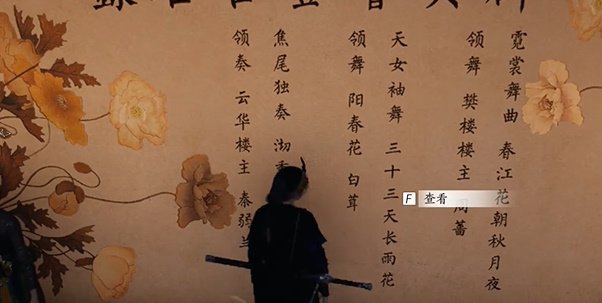 霓裳舞曲 春江花朝秋月夜
领舞 樊楼楼主 周蔷
天女袖舞 三十三天长雨花
领舞 阳春花 白茸
焦尾独奏 沏
领奏 云华楼主 秦弱兰
F 查看